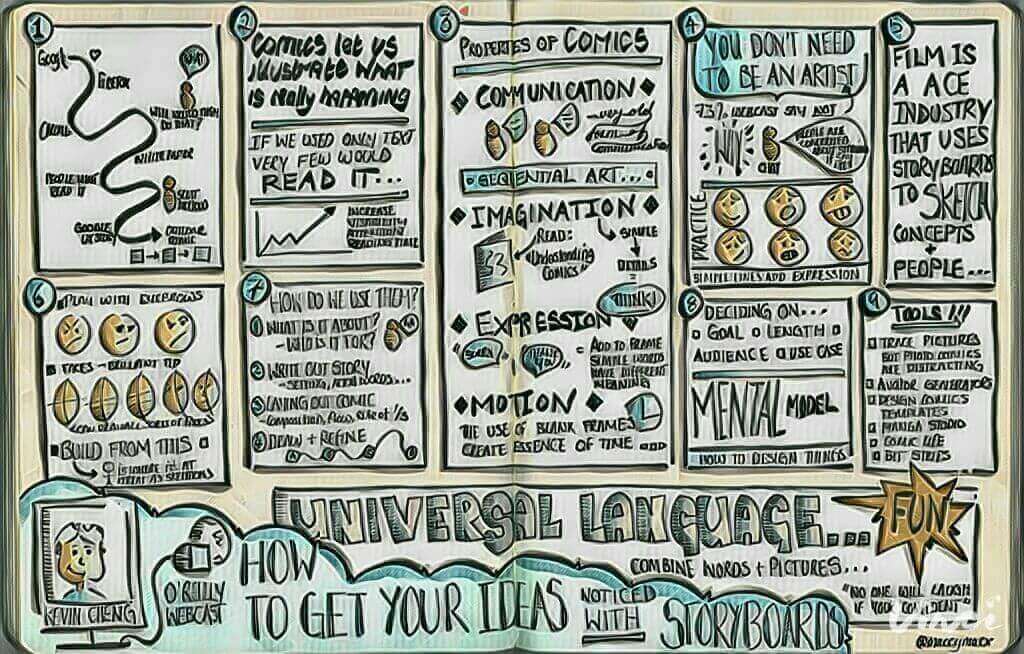 1
Google
Firefox
WHAT
WHITEPAPER
PEOPLE WON'T
READ IT
SCOTT
McCLOUD
2
COMICS LET US
ILLUSTRATE WHAT
IS REALLY HAPPENING
IF WE USED ONLY TEXT
VERY FEW WOULD
READ IT...
INCREASE
READING TIME
3
PROPERTIES OF COMICS
COMMUNICATION
very old
form of
communication
SEQUENTIAL ART...
IMAGINATION
READ:
"Understanding
Comics"
SIMPLE
DETAILS
=
THINK!
EXPRESSION
THANK
YOU
= ADD TO FRAME
SIMPLE WORDS
HAVE DIFFERENT
MEANING
MOTION
THE USE OF BLANK FRAMES
CREATE ESSENCE OF TIME
4
YOU DON'T NEED
TO BE AN ARTIST
73% WEBCAST SAY NOT
WHY
CHAT
PEOPLE ARE
CONCERNED
PRACTICE
SIMPLE LINES ADD EXPRESSION
5
FILM IS
A ACE
INDUSTRY
THAT USES
STORYBOARDS
TO SKETCH
CONCEPTS
+
PEOPLE...
6
PLAY WITH EYEBROWS
FACES - BRILLIANT TIP
BUILD FROM THIS
7
HOW DO WE USE THEM?
1 WHAT IS IT ABOUT?
- WHO IS IT FOR?
2 WRITE OUT STORY
- SETTING, ADD WORDS...
3 LAYING OUT COMIC
- composition, flow, rule of 1/3
4 DRAW + REFINE
8
DECIDING ON...
GOAL LENGTH
AUDIENCE USE CASE
MENTAL MODEL
HOW TO DESIGN THINGS
9
TOOLS!!!
TRACE PICTURES
BUT PHOTO COMICS
ARE DISTRACTING
AVATAR GENERATORS
DESIGN COMICS
TEMPLATES
MANGA STUDIO
COMIC LIFE
BIT STRIPS
UNIVERSAL LANGUAGE...
FUN
COMBINE WORDS + PICTURES...
KEVIN CHENG
O'REILLY
WEBCAST
HOW
TO GET YOUR IDEAS NOTICED
WITH STORYBOARDS
"NO ONE WILL LAUGH
IF YOUR CONFIDENT"